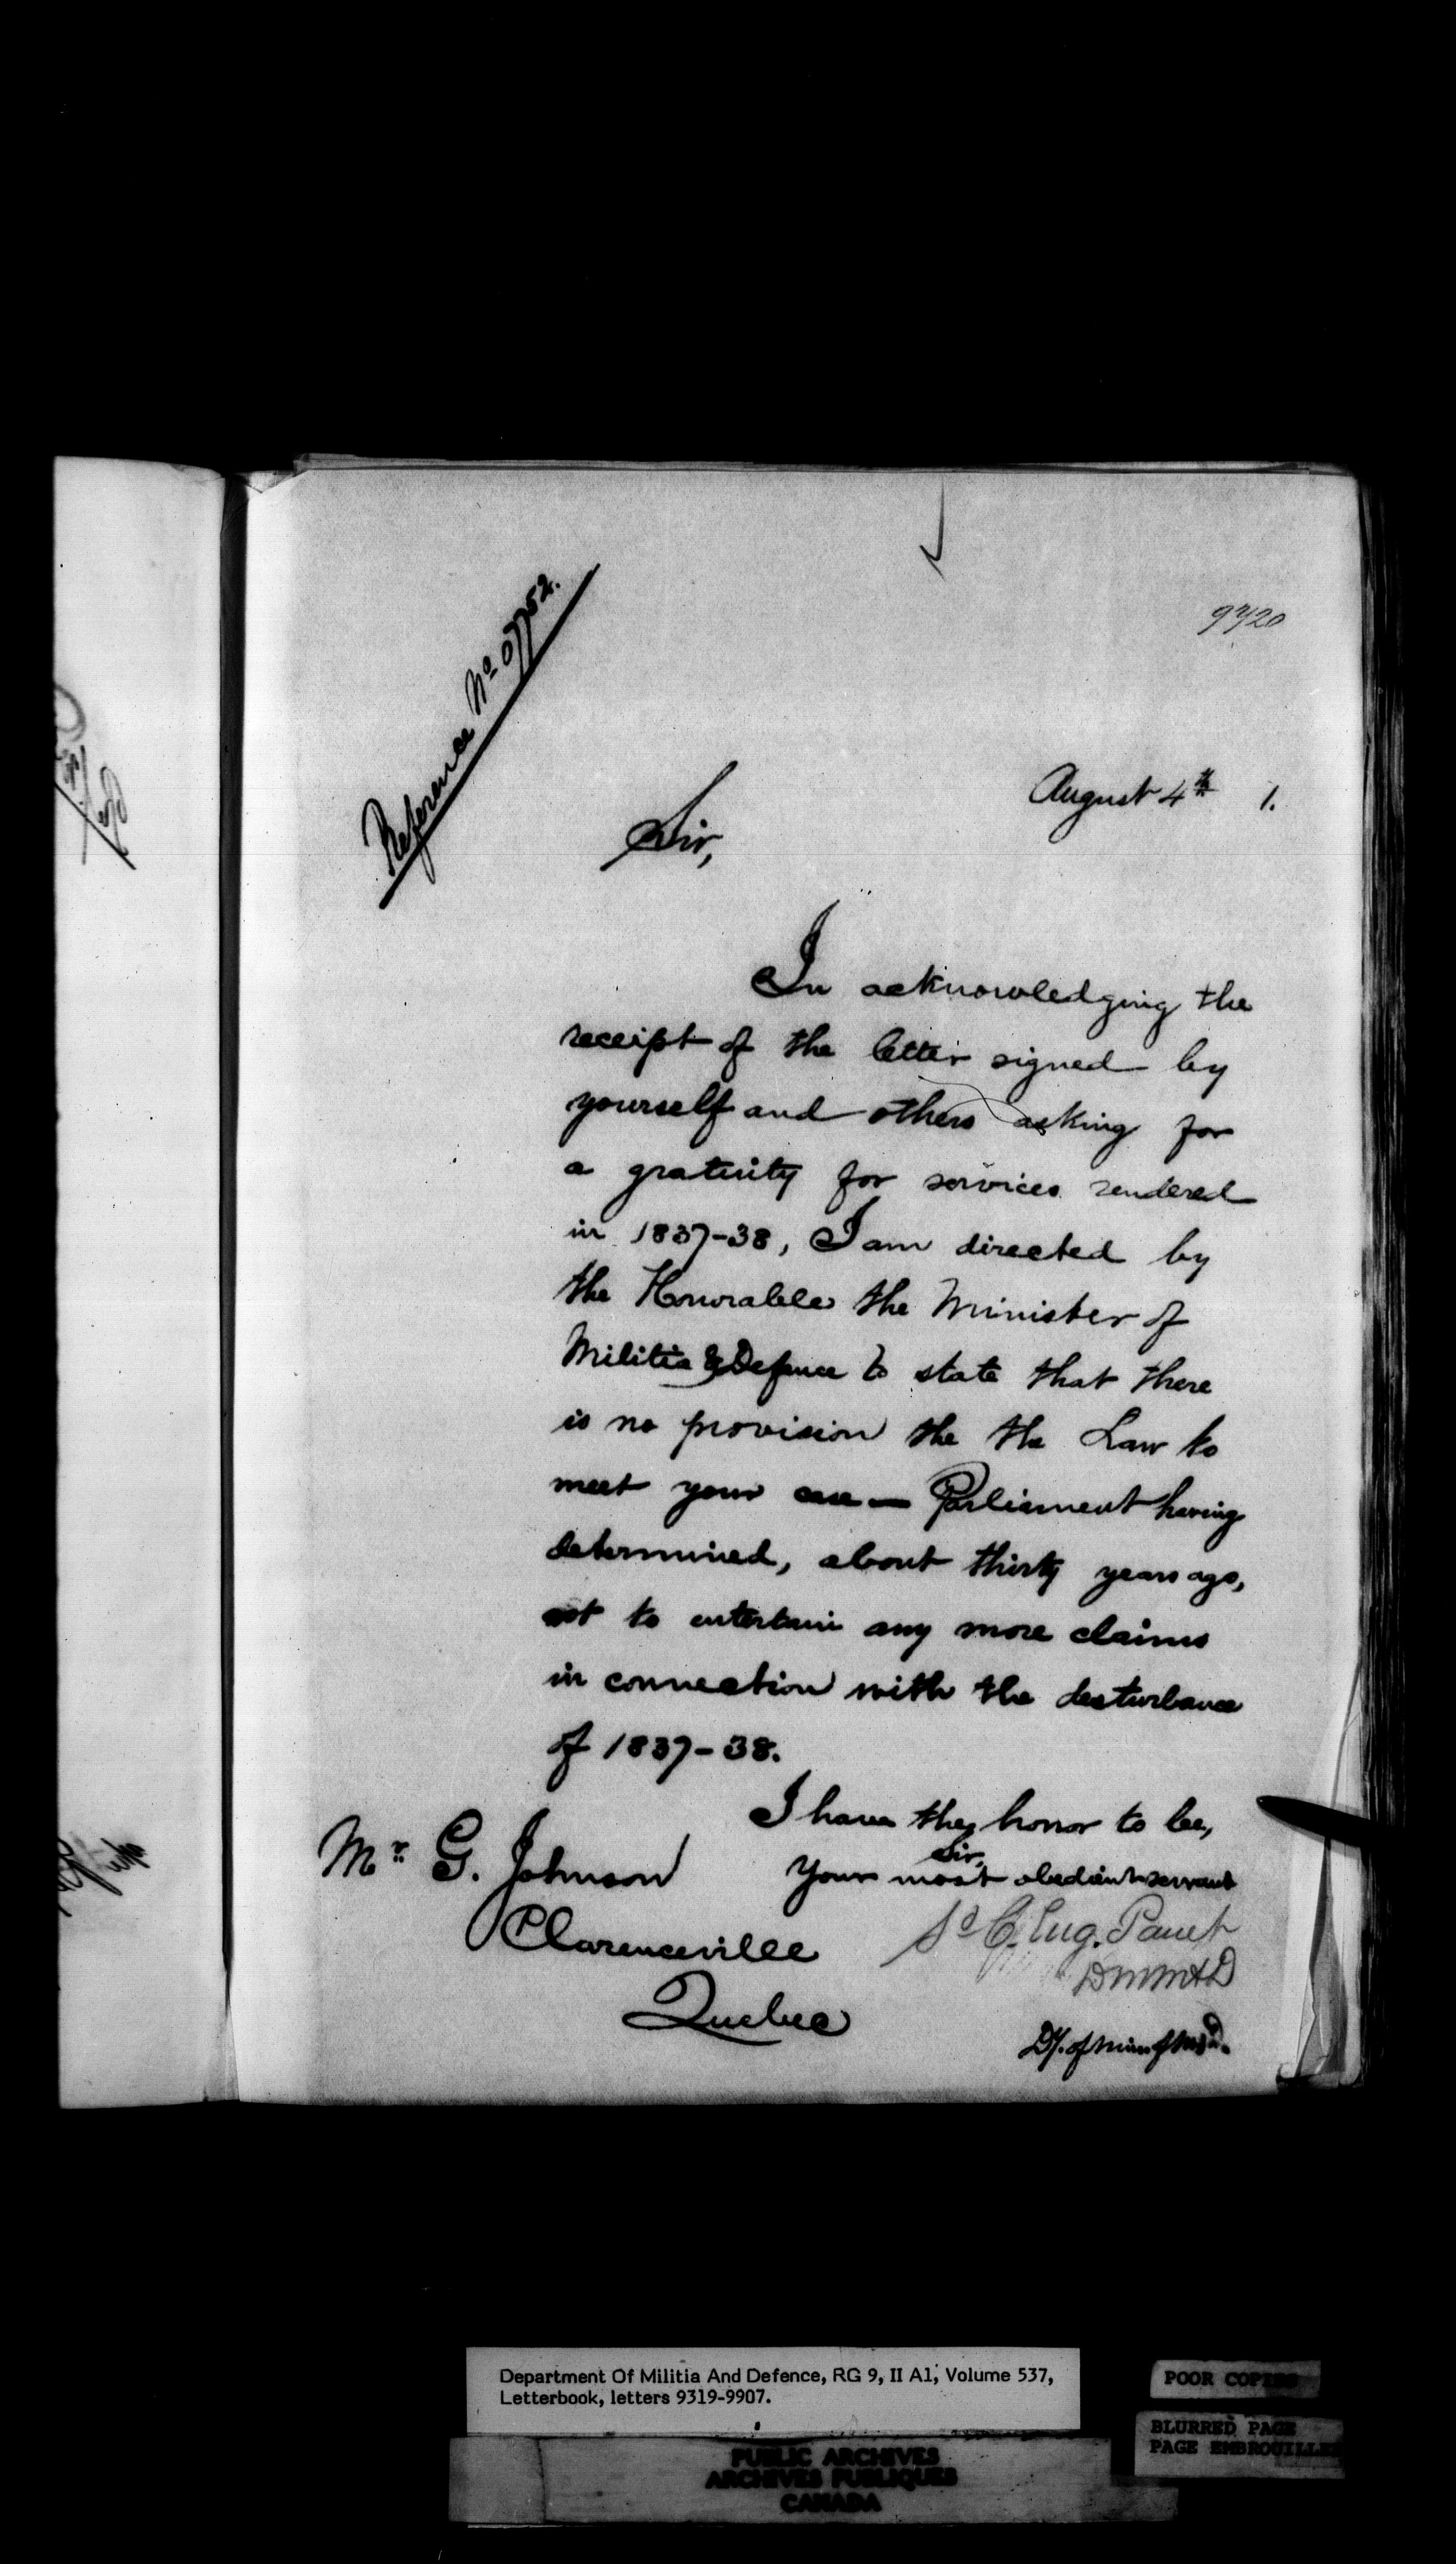 9720
Reference No 07752.
August 4th 1.
Sir,
In acknowledging the
receipt of the letter signed by
yourself and others asking for
a gratuity for services rendered
in 1837-38, I am directed by
the Honorable the Minister of
Militia & Defence to state that there
is no provision the the Law to
meet your case — Parliament having
determined, about thirty years ago,
not to entertain any more claims
in connection with the desturbance
of 1837-38.
I have the honor to be,
Sir,
Your most obedient servant
Sd C. Eug. Panet
DMM&D
Dy. of Min of M & D.
Mr G. Johnson
Clarenceville
Quebec
Department Of Militia And Defence, RG 9, II A1, Volume 537,
Letterbook, letters 9319-9907.
POOR COPIES
BLURRED PAGE
PAGE EMBROUILLEE
PUBLIC ARCHIVES
ARCHIVES PUBLIQUES
CANADA